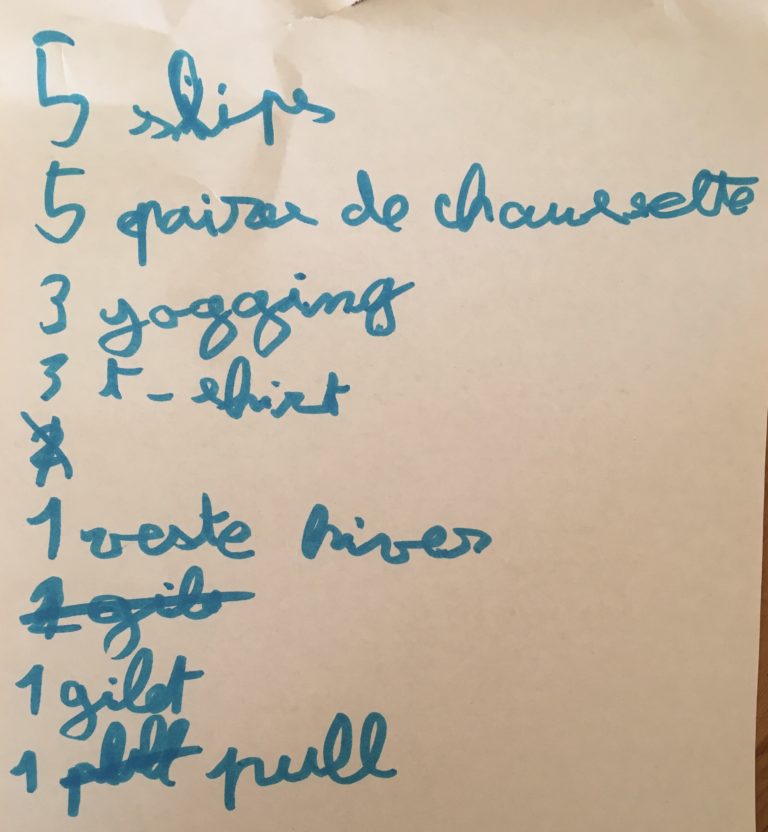 5 slips
5 paires de chaussette
3 jogging
3 t-shirt
1 veste hiver
1 gilet
1 pull